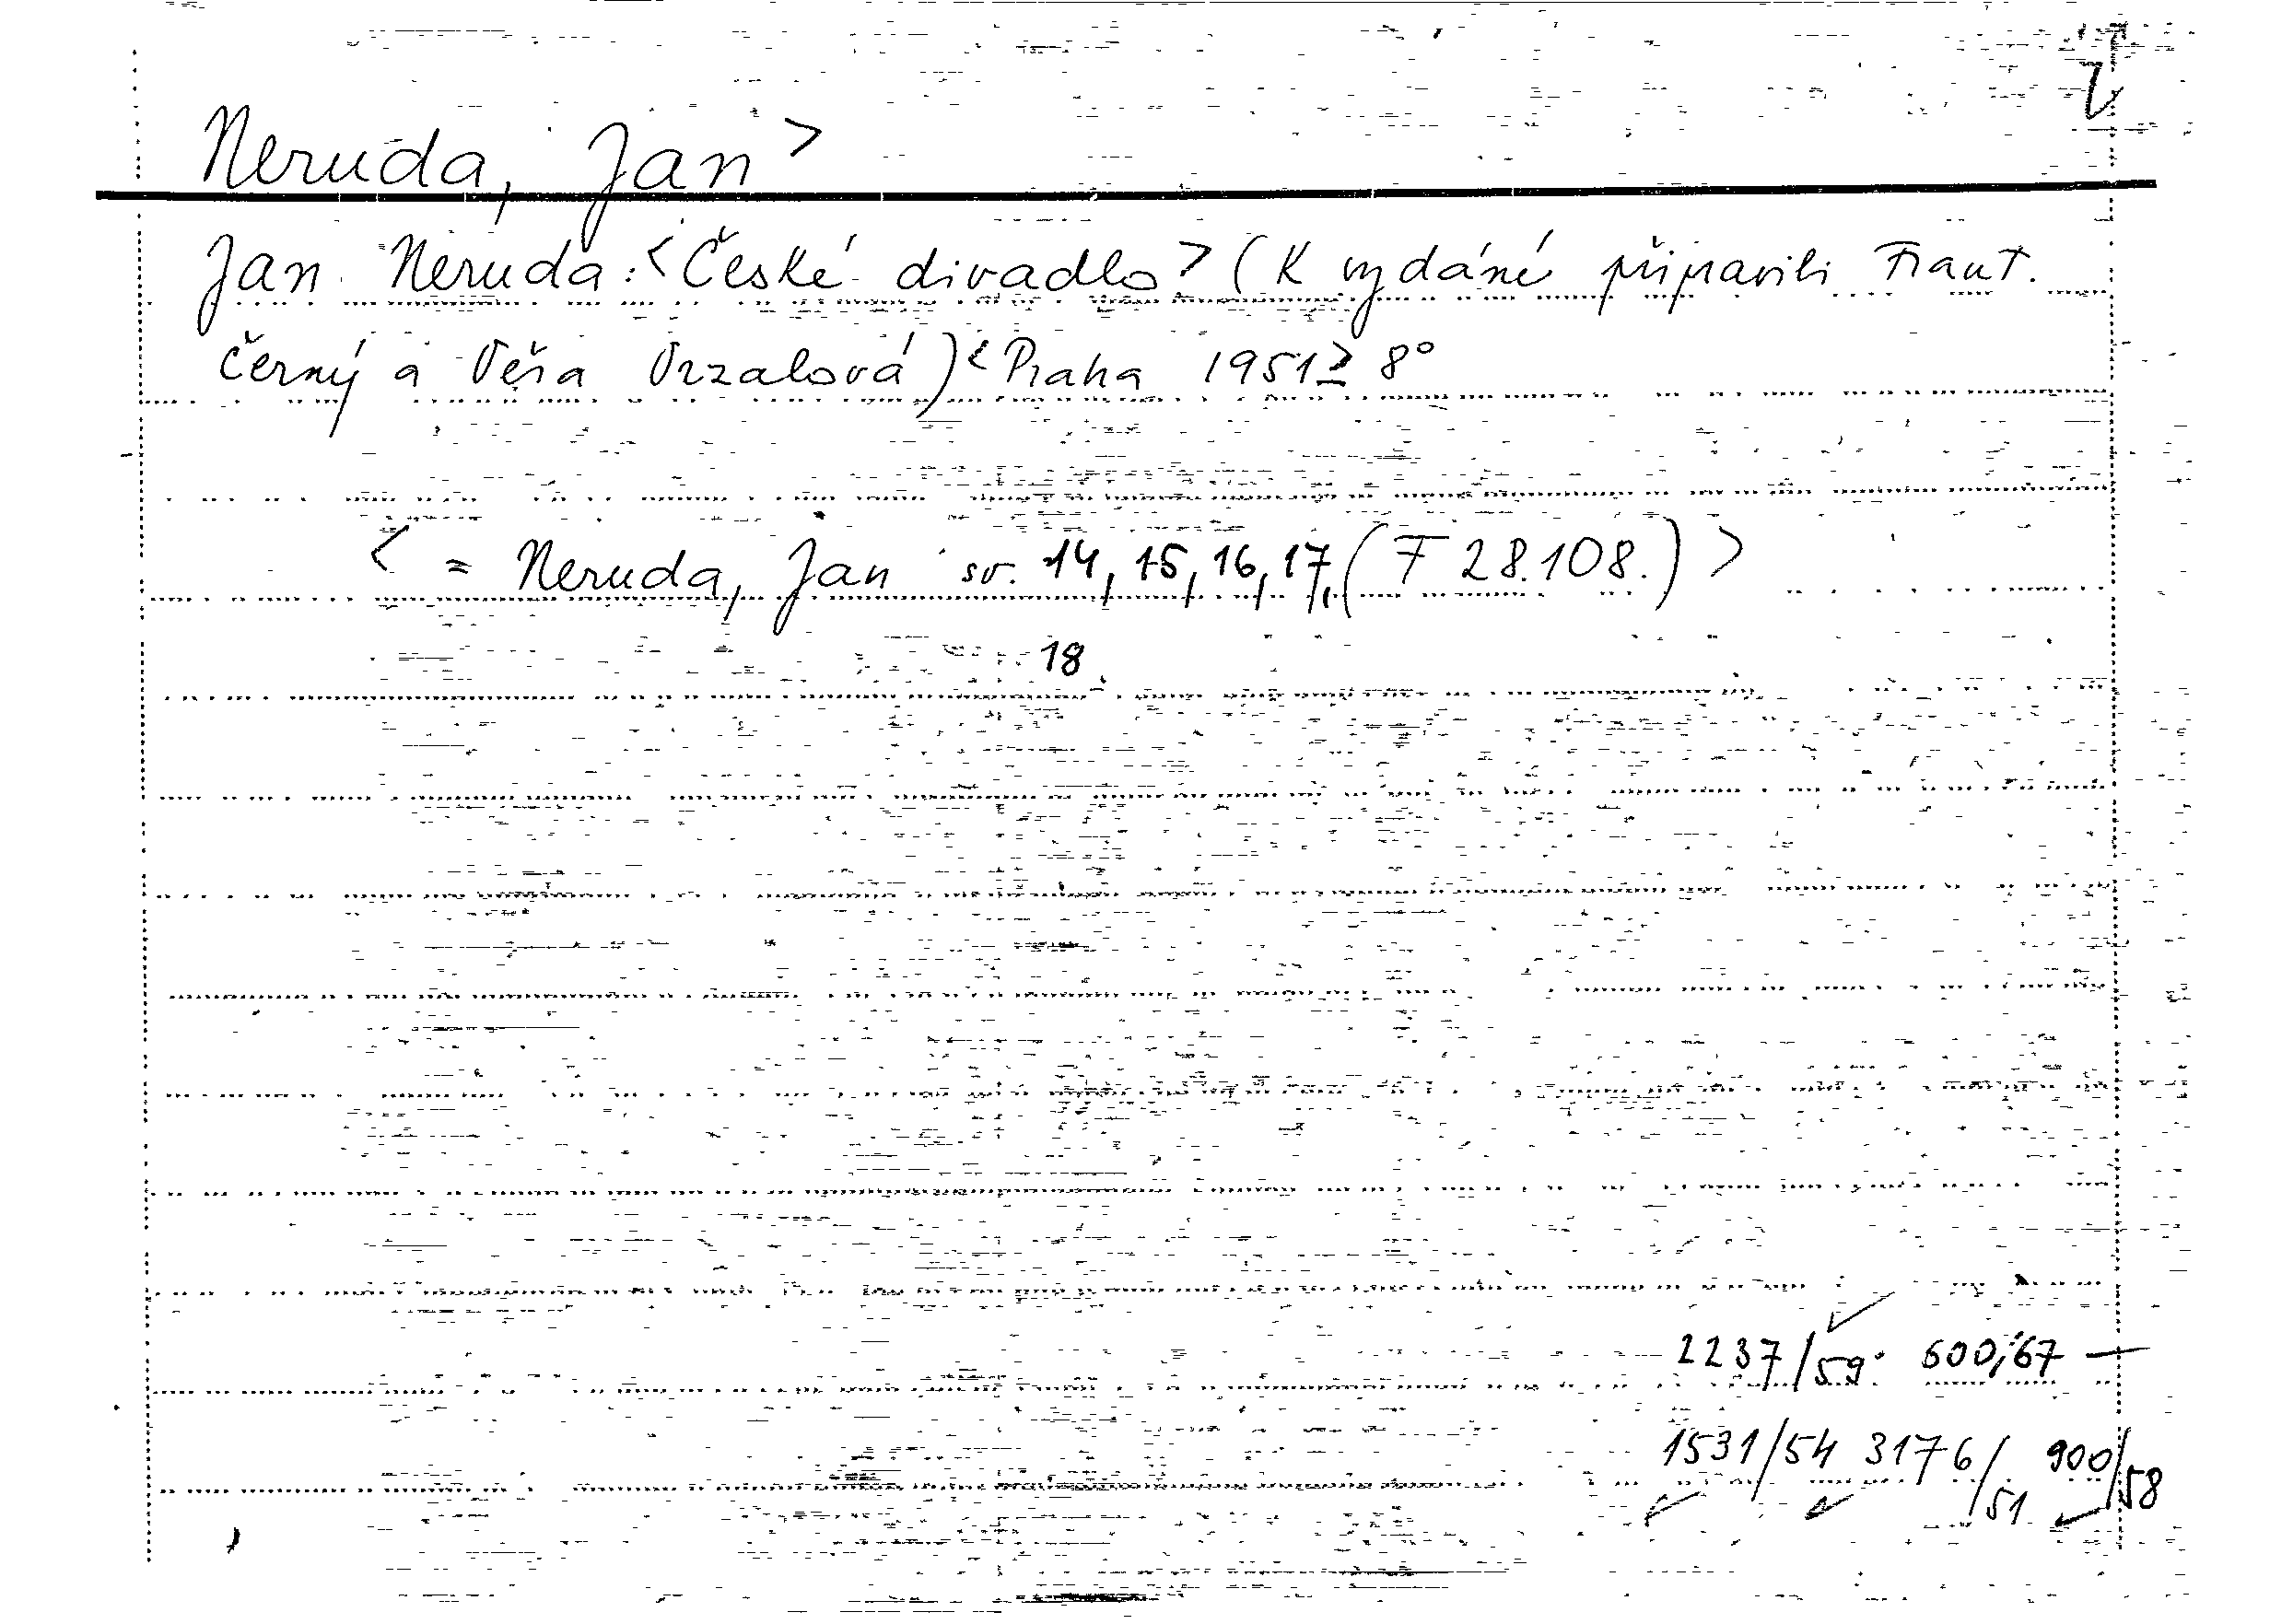 Neruda, Jan >
Jan Neruda: <České divadlo> (K vydání připravili Frant.
Černý a Věra Vrzalová) <Praha 1951> 8°
< = Neruda, Jan sv. 14, 15, 16, 17, (F 28.108.) >
18
2237/59. 600/67 —
1531/54 3176/51 900/58